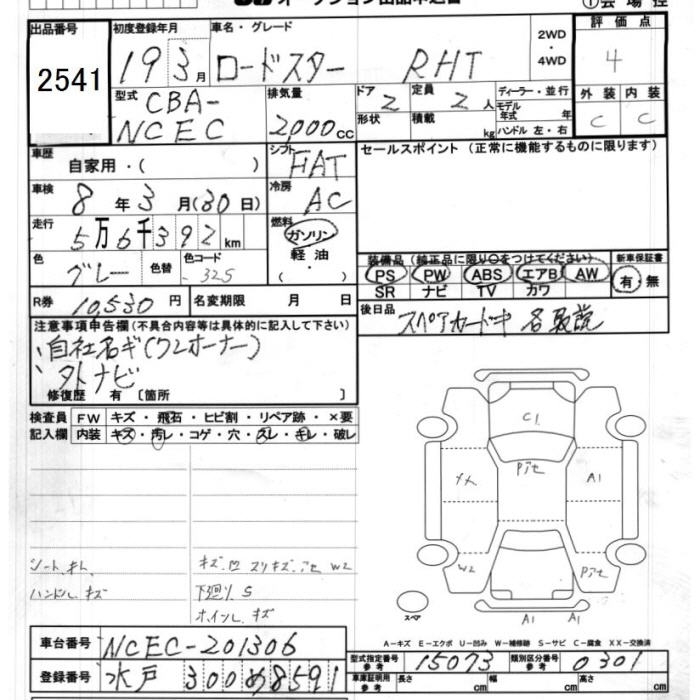 オークション出品申込書 ①会場控
出品番号 初度登録年月 車名・グレード 2WD・4WD 評価点
2541 19 3月 ロードスター RHT 4
型式 CBA-NCEC 排気量 2,000cc ドア 2 形状 定員 2人 積載 kg ディーラー・並行 モデル年式 年 ハンドル 左・右 外装 内装 C C
車歴 自家用・( ) シフト FAT セールスポイント (正常に機能するものに限ります)
車検 8年3月(30日) 冷房 AC
走行 5万6千392km 燃料 ガソリン 軽油 ( ・ )
色 グレー 色替 色コード 325
装備品 (純正品に限り○をつけてください) 新車保証書
PS PW ABS エアB AW 有・無
SR ナビ TV カワ
R券 10,530円 名変期限 月 日
後日品 スペアカード中 各取説
注意事項申告欄 (不具合内容等は具体的に記入して下さい)
自社名ギ(ワンオーナー)
外ナビ
修復歴 有 〔箇所 〕
検査員 FW キズ・飛石・ヒビ割・リペア跡・×要
記入欄 内装 キズ・汚レ・コゲ・穴・スレ・キレ・破レ
C1
A1
W2
スペア
A1 A1
ハンドル キズ
下廻り S
ホイル キズ
A－キズ E－エクボ U－凹み W－補修跡 S－サビ C－腐食 XX－交換済
車台番号 NCEC-201306
型式指定番号 参考 15073 類別区分番号 参考 0301
登録番号 水戸 300 め8591
車庫証明用 参考 長さ cm 幅 cm 高さ cm